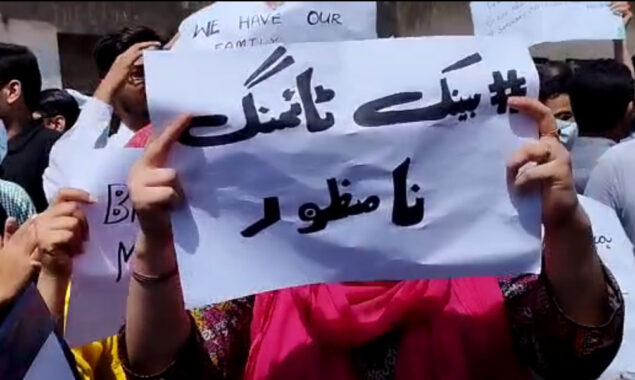 WE HAVE OUR
FAMILY
#بینک ٹائمنگ
نامنظور